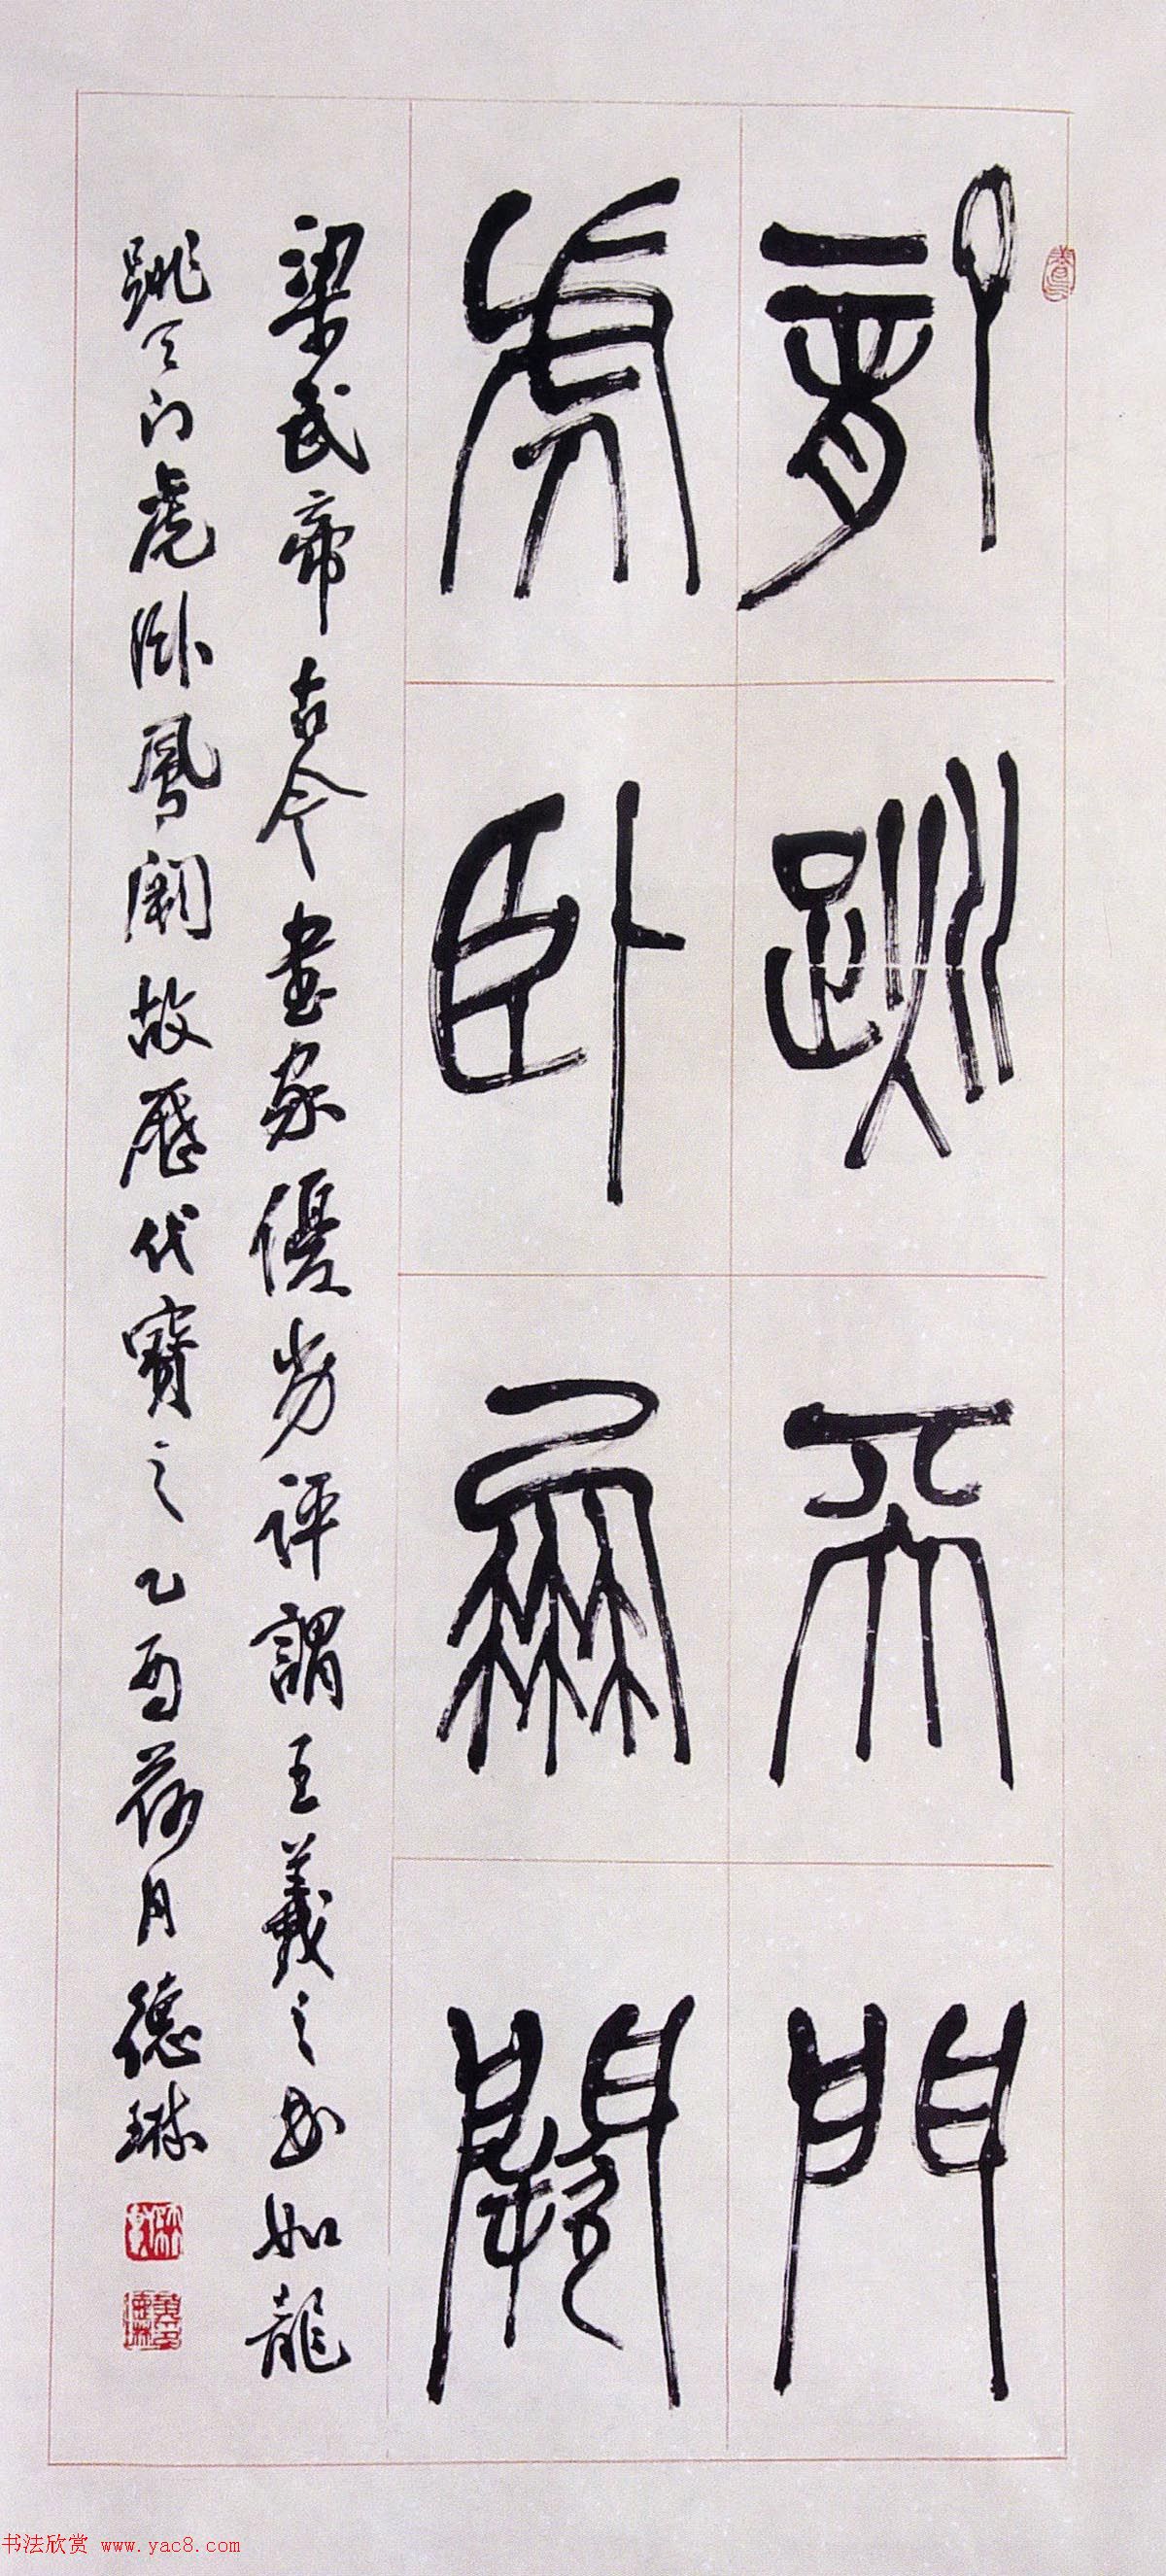 龍跳天門
虎卧鳳闕
梁武帝古今書家優劣評謂王羲之書如龍
跳天门虎卧鳳闕故歷代寶之乙酉荷月德琳
书法欣赏 www.yac8.com